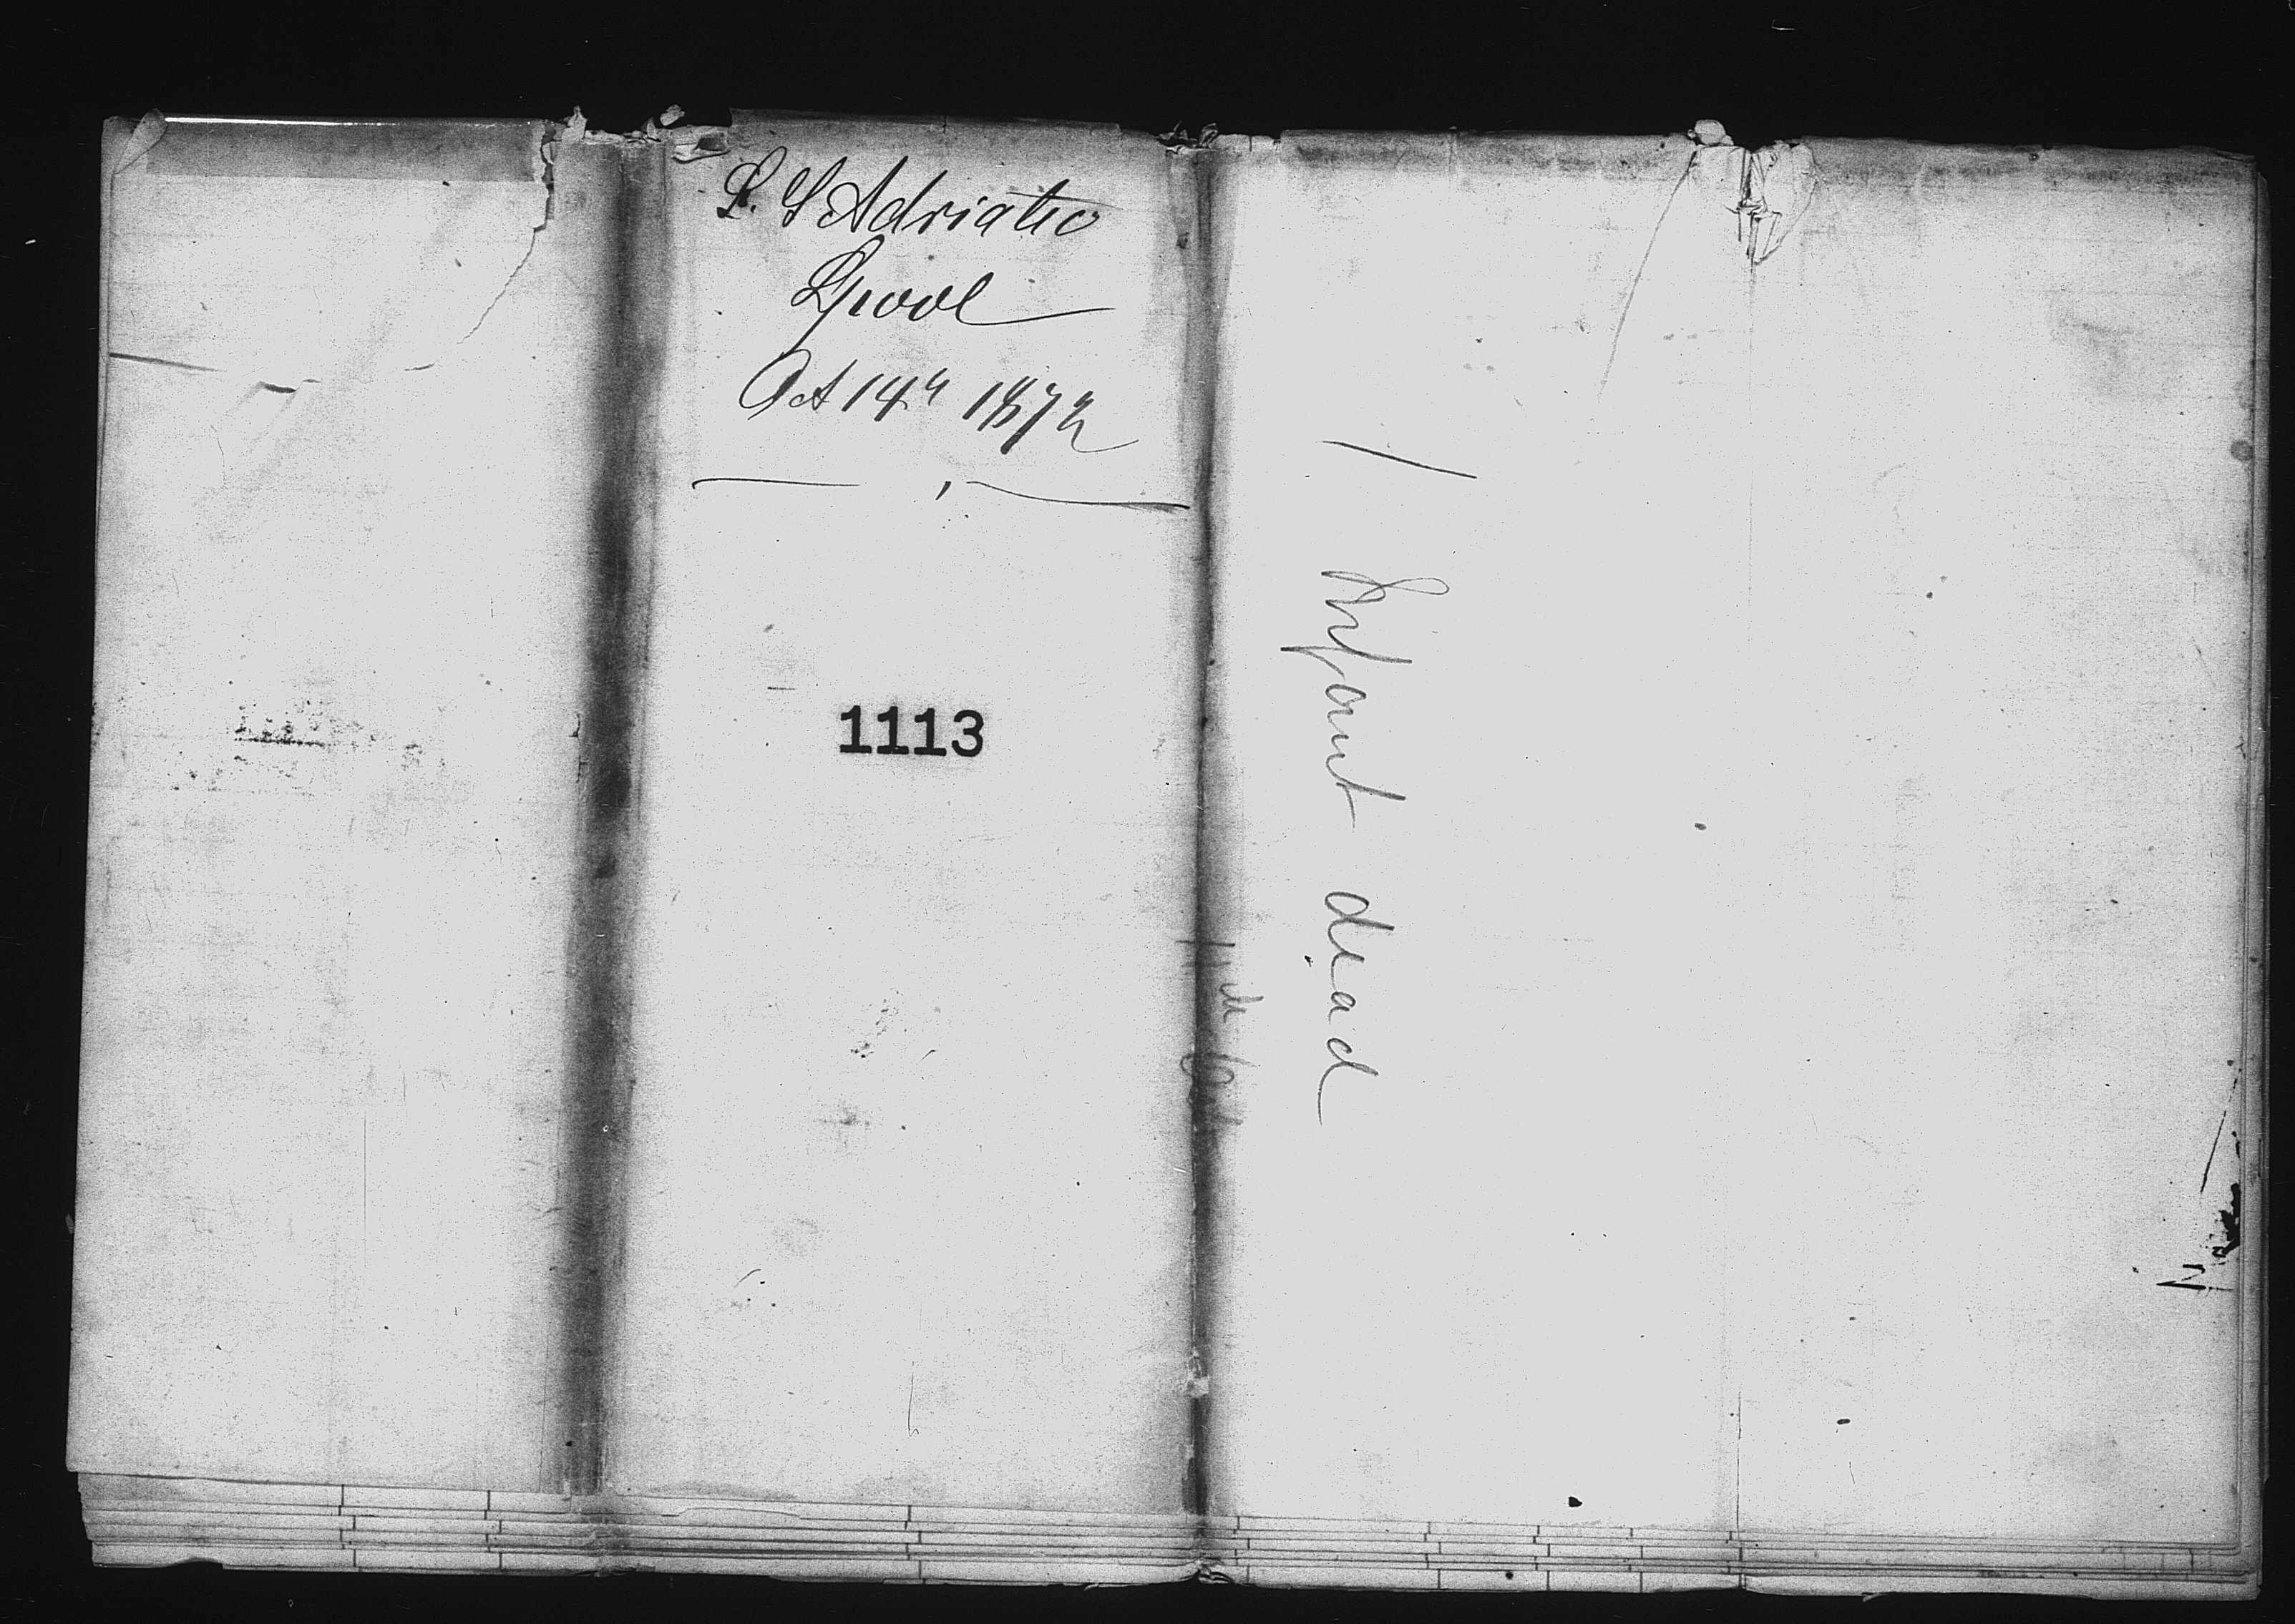 S. S Adriatic
Lpool
Oct 14th 1872
1113
1 Infant dead